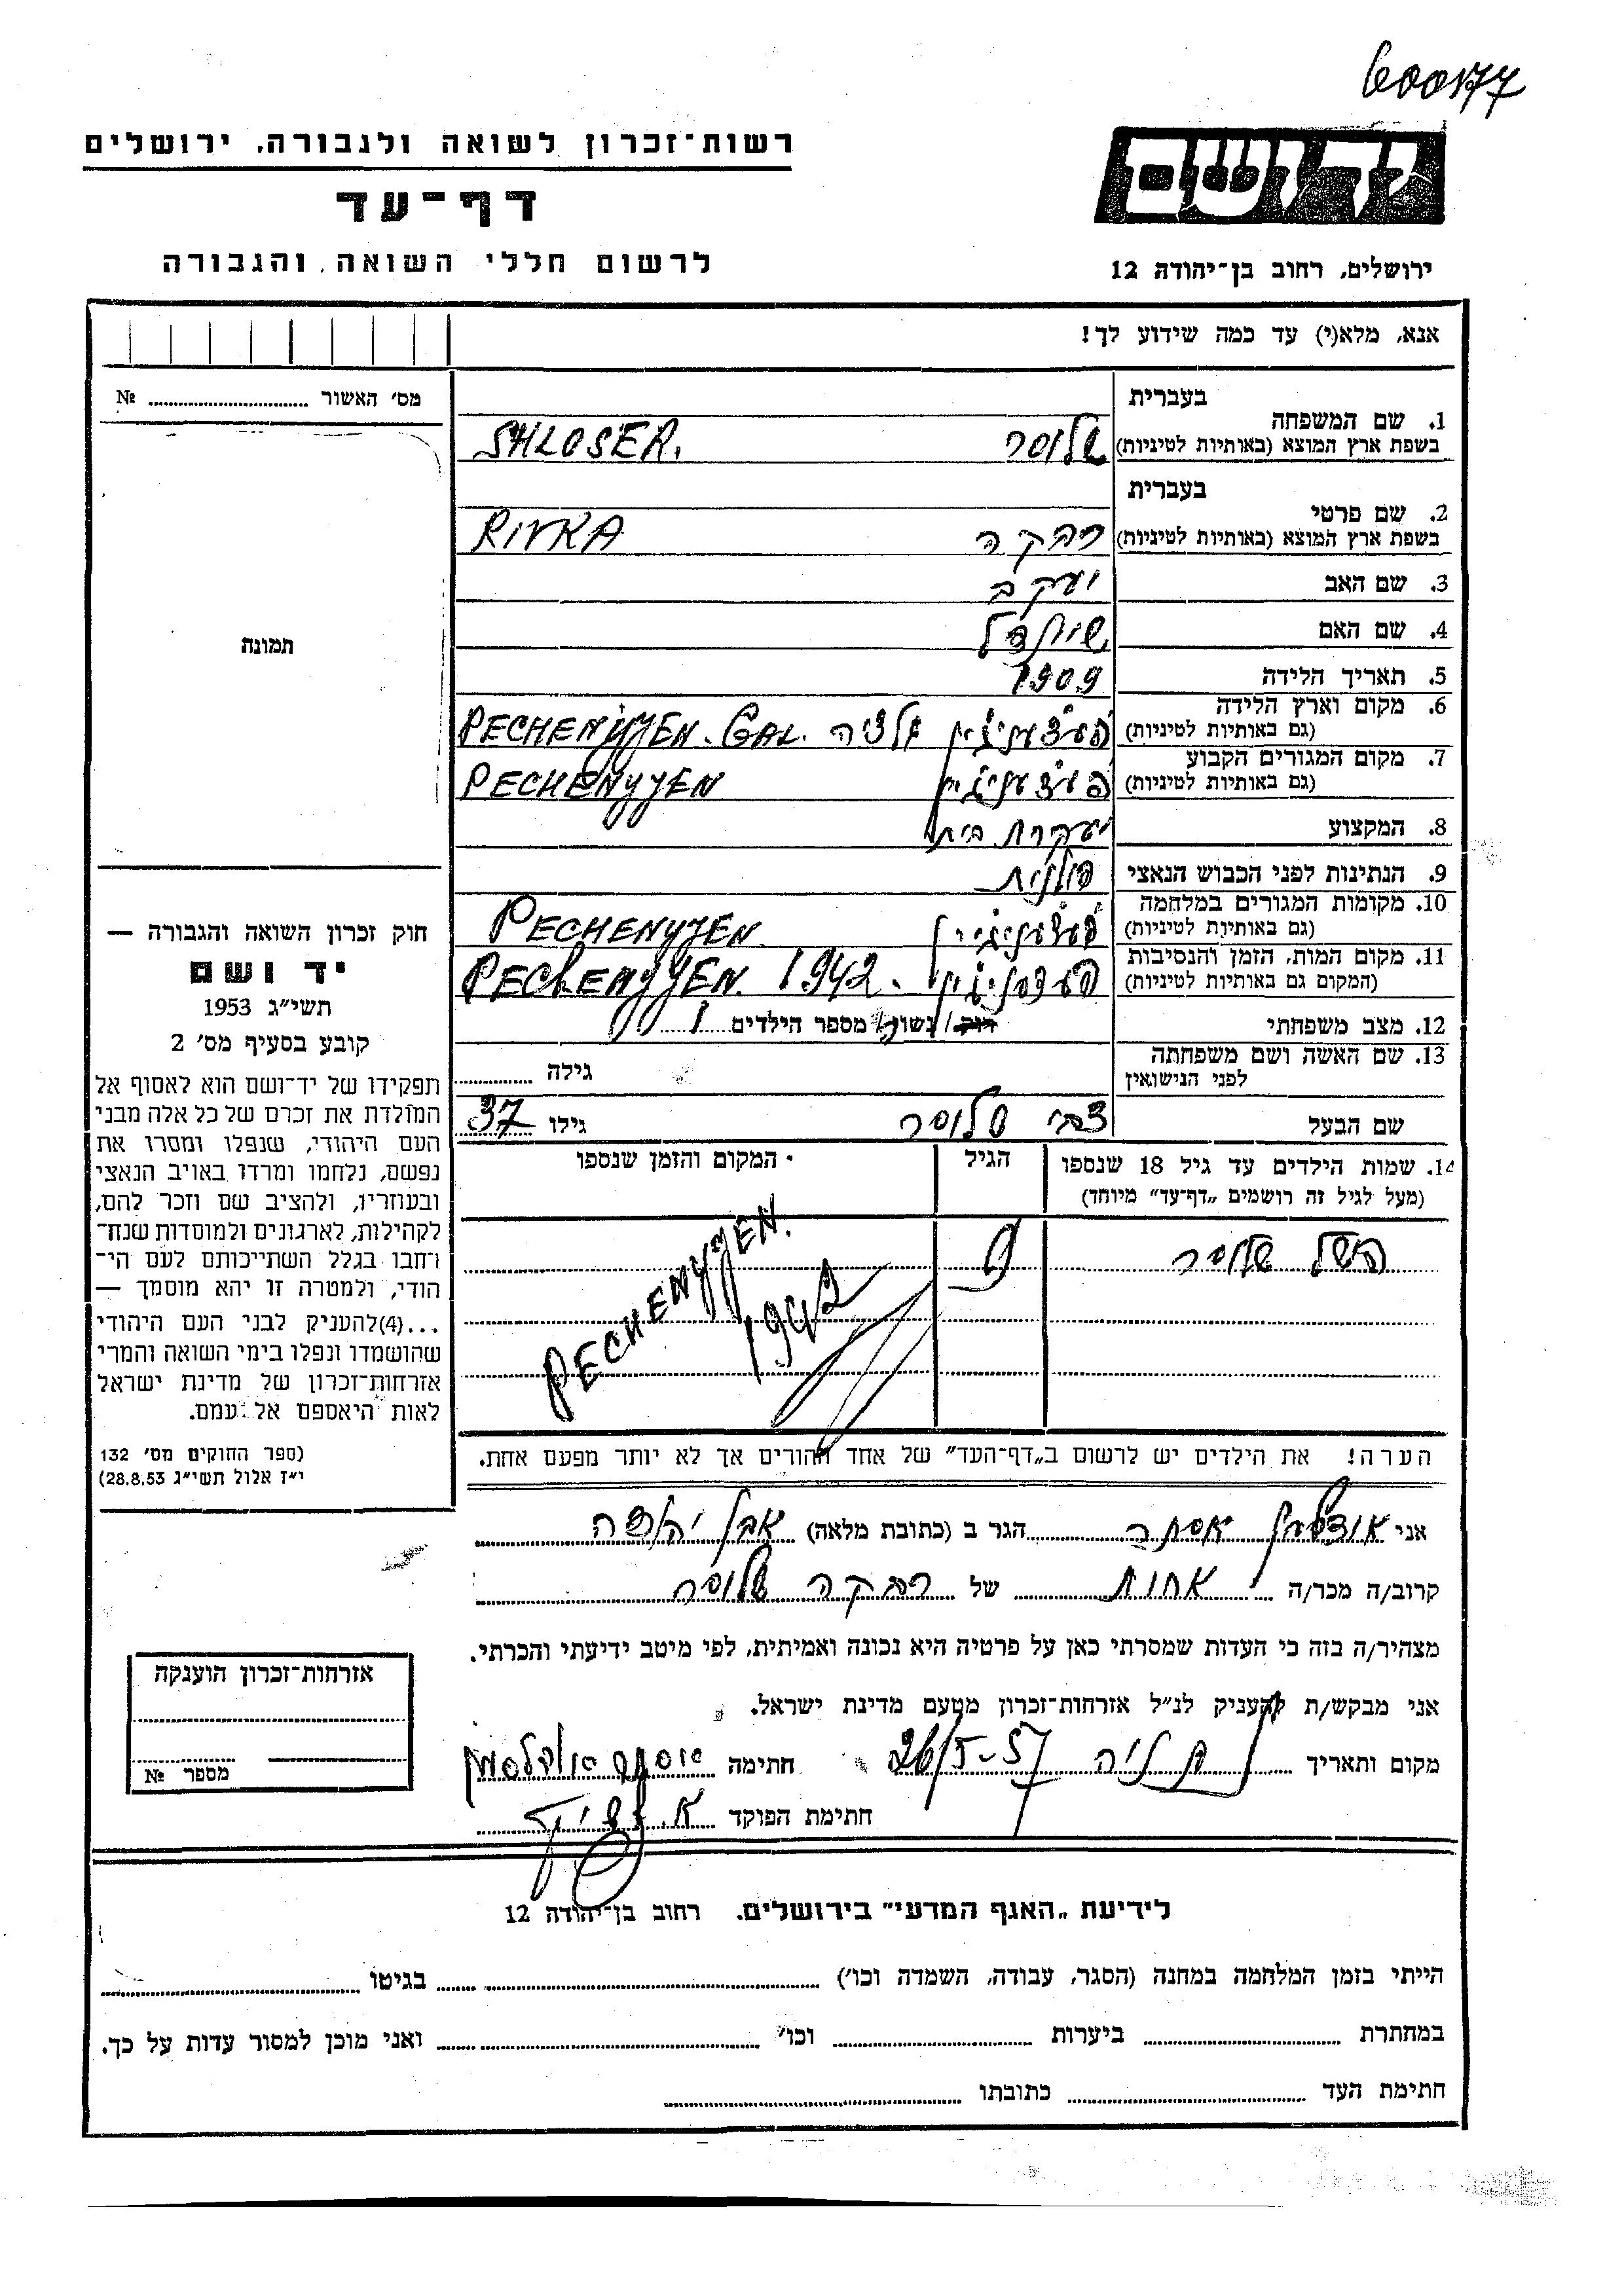 600177
רשות־זכרון לשואה ולגבורה, ירושלים
יד ושם
דף־עד
לרשום חללי השואה והגבורה
ירושלים, רחוב בן־יהודה 12
אנא, מלא(י) עד כמה שידוע לך!
מס׳ האשור № 
בעברית
1. שם המשפחה
בשפת ארץ המוצא (באותיות לטיניות) שלוסר SHLOSER.
בעברית
2. שם פרטי
בשפת ארץ המוצא (באותיות לטיניות) רבקה RIVKA
3. שם האב יעקב
4. שם האם שינדל
5. תאריך הלידה 1909
6. מקום וארץ הלידה
(גם באותיות לטיניות) פעצעניזשין גליציה PECHENYJEN. GAL.
7. מקום המגורים הקבוע
(גם באותיות לטיניות) PECHENYJEN
8. המקצוע עקרת בית
9. הנתינות לפני הכבוש הנאצי פולנית
10. מקומות המגורים במלחמה
(גם באותיות לטיניות) PECHENYJEN
11. מקום המות, הזמן והנסיבות
(המקום גם באותיות לטיניות) PECHENYJEN. 1942.
12. מצב משפחתי רוק/נשוי/ מספר הילדים 1
13. שם האשה ושם משפחתה
לפני הנישואין גילה
שם הבעל צבי שלוסר גילו 37
14. שמות הילדים עד גיל 18 שנספו
(מעל לגיל זה רושמים „דף־עד״ מיוחד)
הגיל
המקום והזמן שנספו
השל שלוסר 9 PECHENYJEN. 1942
הערה! את הילדים יש לרשום ב„דף־העד״ של אחד ההורים אך לא יותר מפעם אחת.
תמונה
חוק זכרון השואה והגבורה —
יד ושם
תשי״ג 1953
קובע בסעיף מס׳ 2
תפקידו של יד־ושם הוא לאסוף אל
המולדת את זכרם של כל אלה מבני
העם היהודי, שנפלו ומסרו את
נפשם, נלחמו ומרדו באויב הנאצי
ובעוזריו, ולהציב שם וזכר להם,
לקהילות, לארגונים ולמוסדות שנח־
רחבו בגלל השתייכותם לעם הי־
הודי, ולמטרה זו יהא מוסמך —
...(4)להעניק לבני העם היהודי
שהושמדו ונפלו בימי השואה והמרי
אזרחות־זכרון של מדינת ישראל
לאות היאספם אל עמם.
(ספר החוקים מס׳ 132
י״ז אלול תשי״ג 28.8.53)
אני אסתר הגר ב (כתובת מלאה) אבן יהודה
קרוב/ה מכר/ה אחות של רבקה שלוסר
מצהיר/ה בזה כי העדות שמסרתי כאן על פרטיה היא נכונה ואמיתית, לפי מיטב ידיעתי והכרתי.
אני מבקש/ת להעניק לנ״ל אזרחות־זכרון מטעם מדינת ישראל.
מקום ותאריך נתניה 26/5-57 חתימה
חתימת הפוקד
אזרחות־זכרון הוענקה
מספר №
לידיעת „האגף המדעי״ בירושלים. רחוב בן־יהודה 12
הייתי בזמן המלחמה במחנה (הסגר, עבודה, השמדה וכו׳) בגיטו
במחתרת ביערות וכו׳ ואני מוכן למסור עדות על כך.
חתימת העד כתובתו